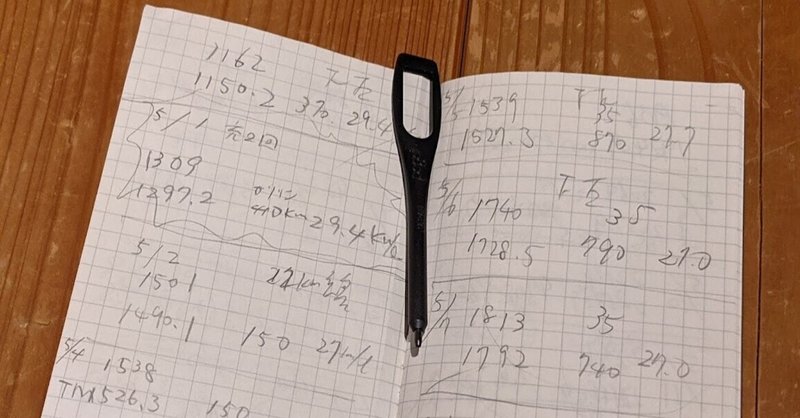 1162
1150.2 370 29.4
5/1
1309
1297.2 410km 29.4km/L
5/2
1501 22km
1490.1 150 27km/L
5/4 1538
1526.3 150
5/5 1539 35
1527.3 870 27.7
5/6 1740 35
1728.5 790 27.0
5/7 1813 35
1792 740 27.0